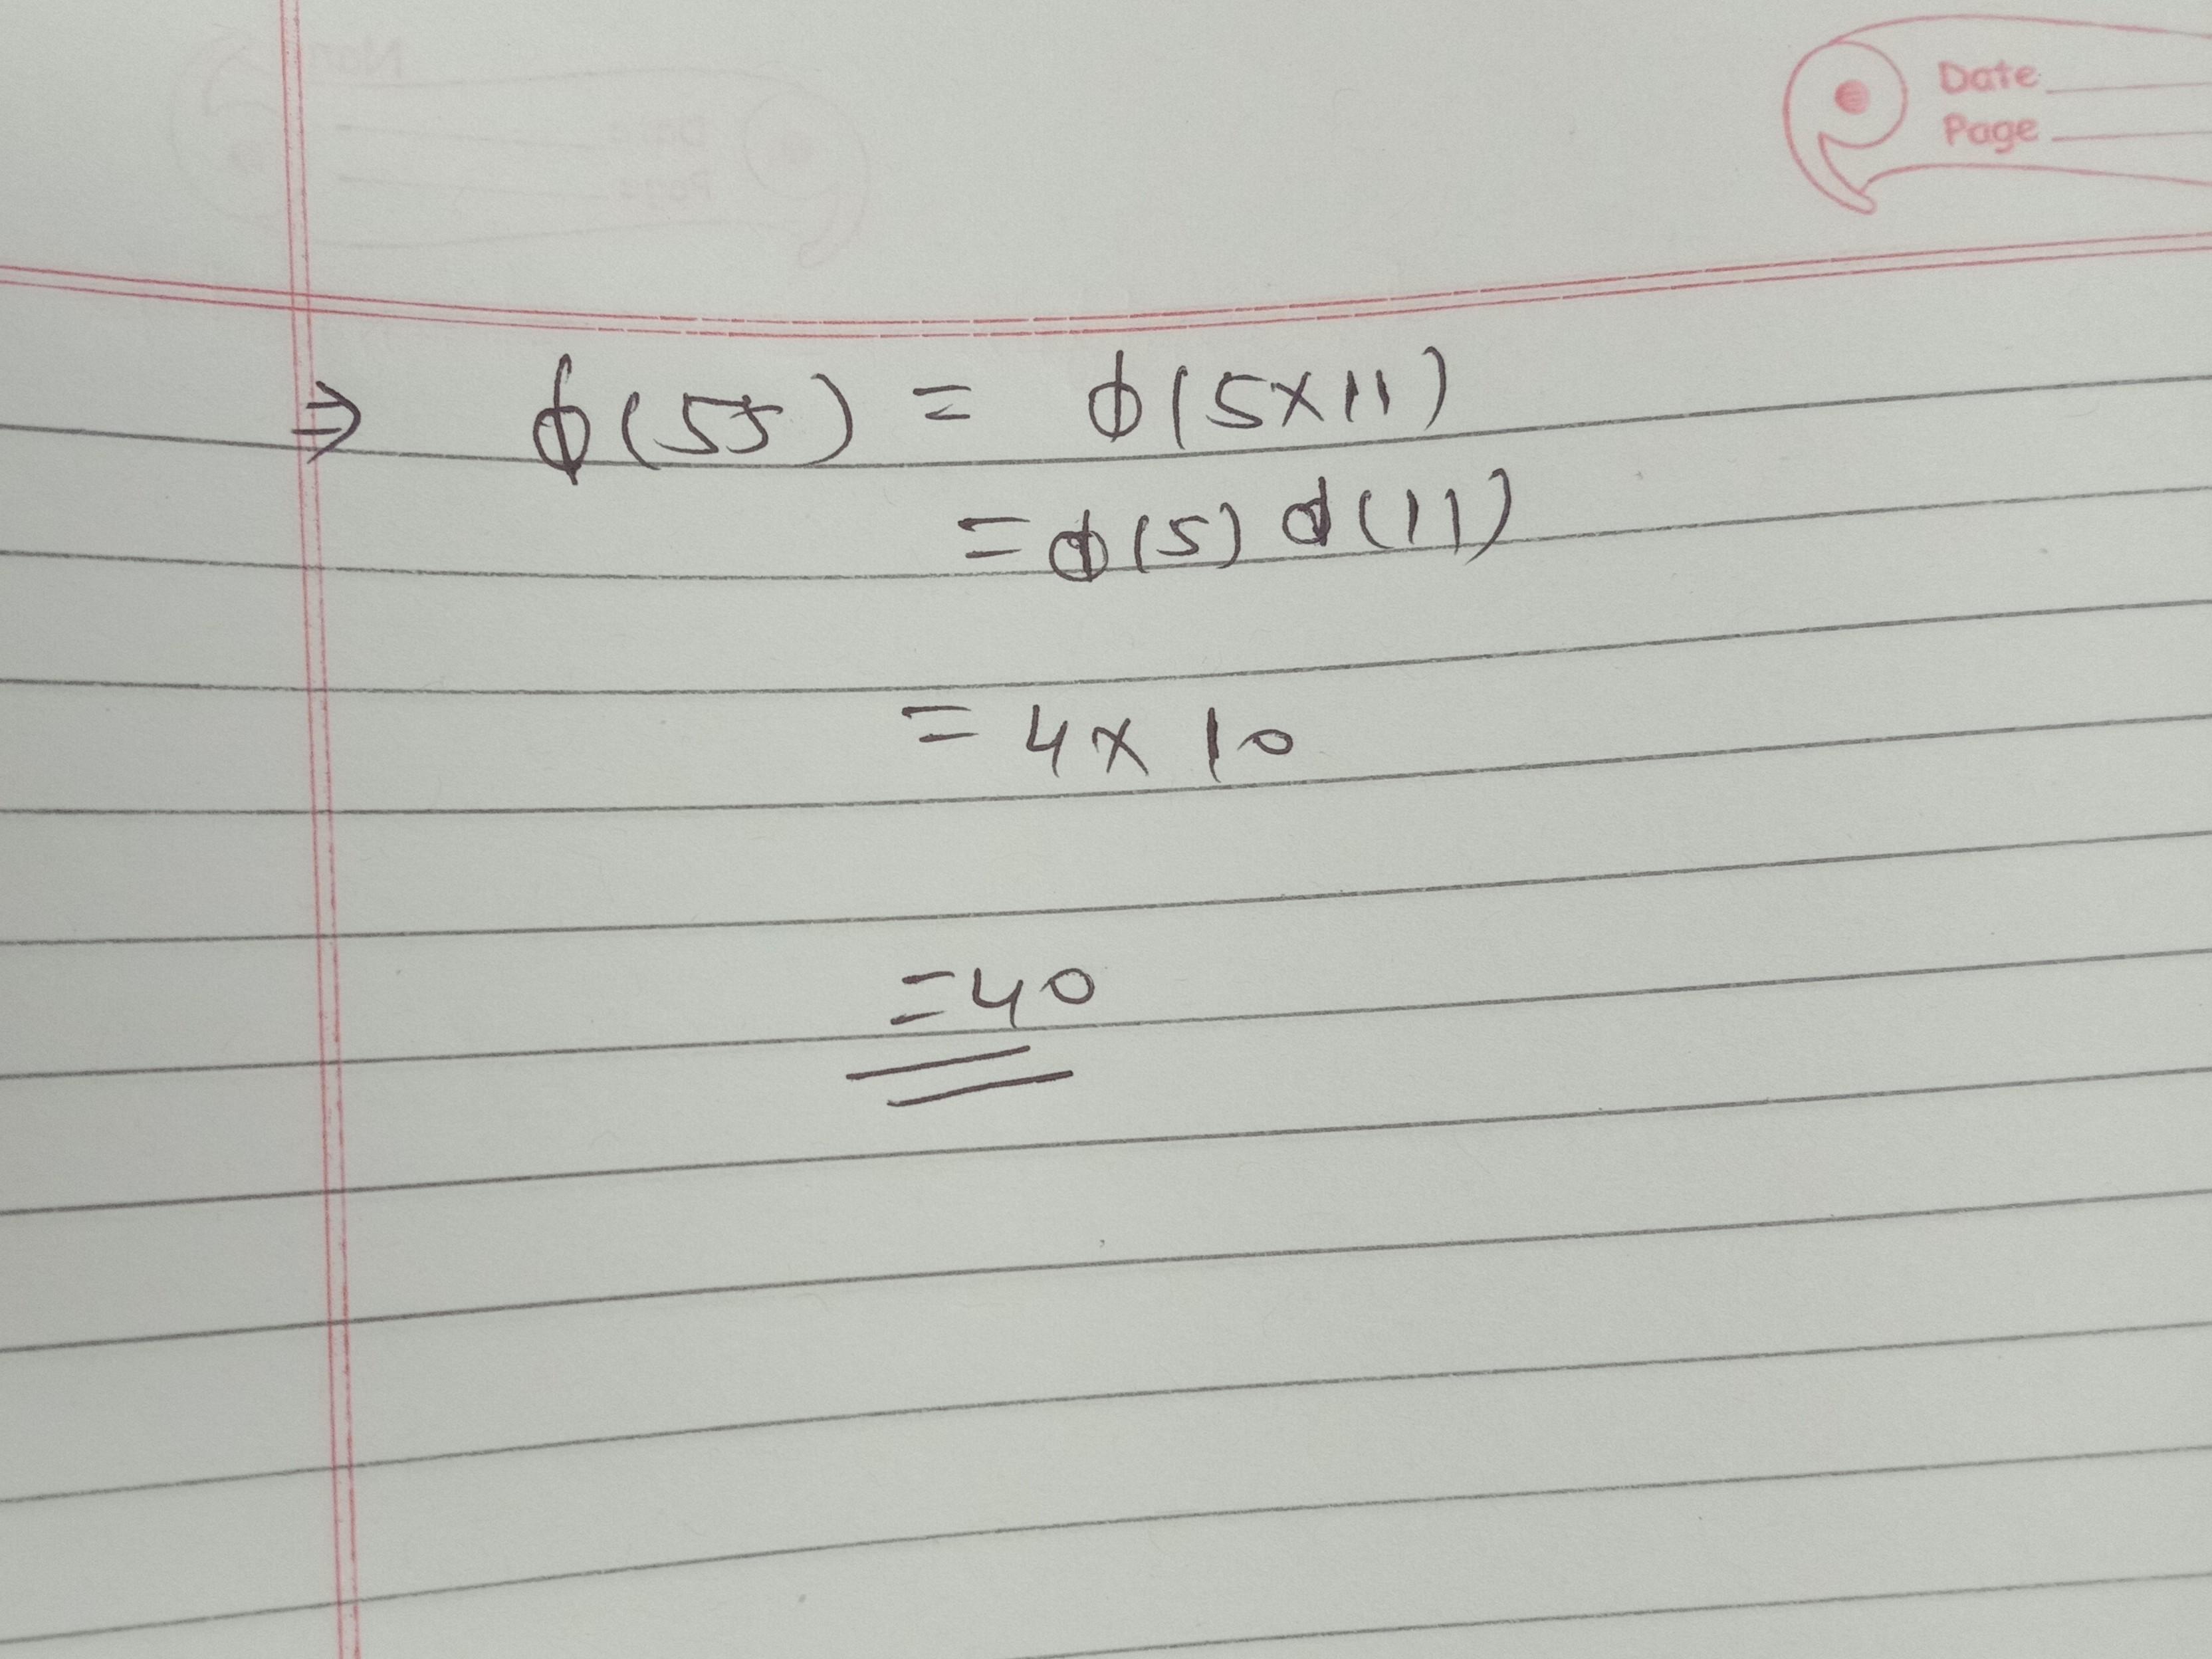 Date
Page
⇒ ϕ(55) = ϕ(5×11)
= ϕ(5) ϕ(11)
= 4 × 10
= 40